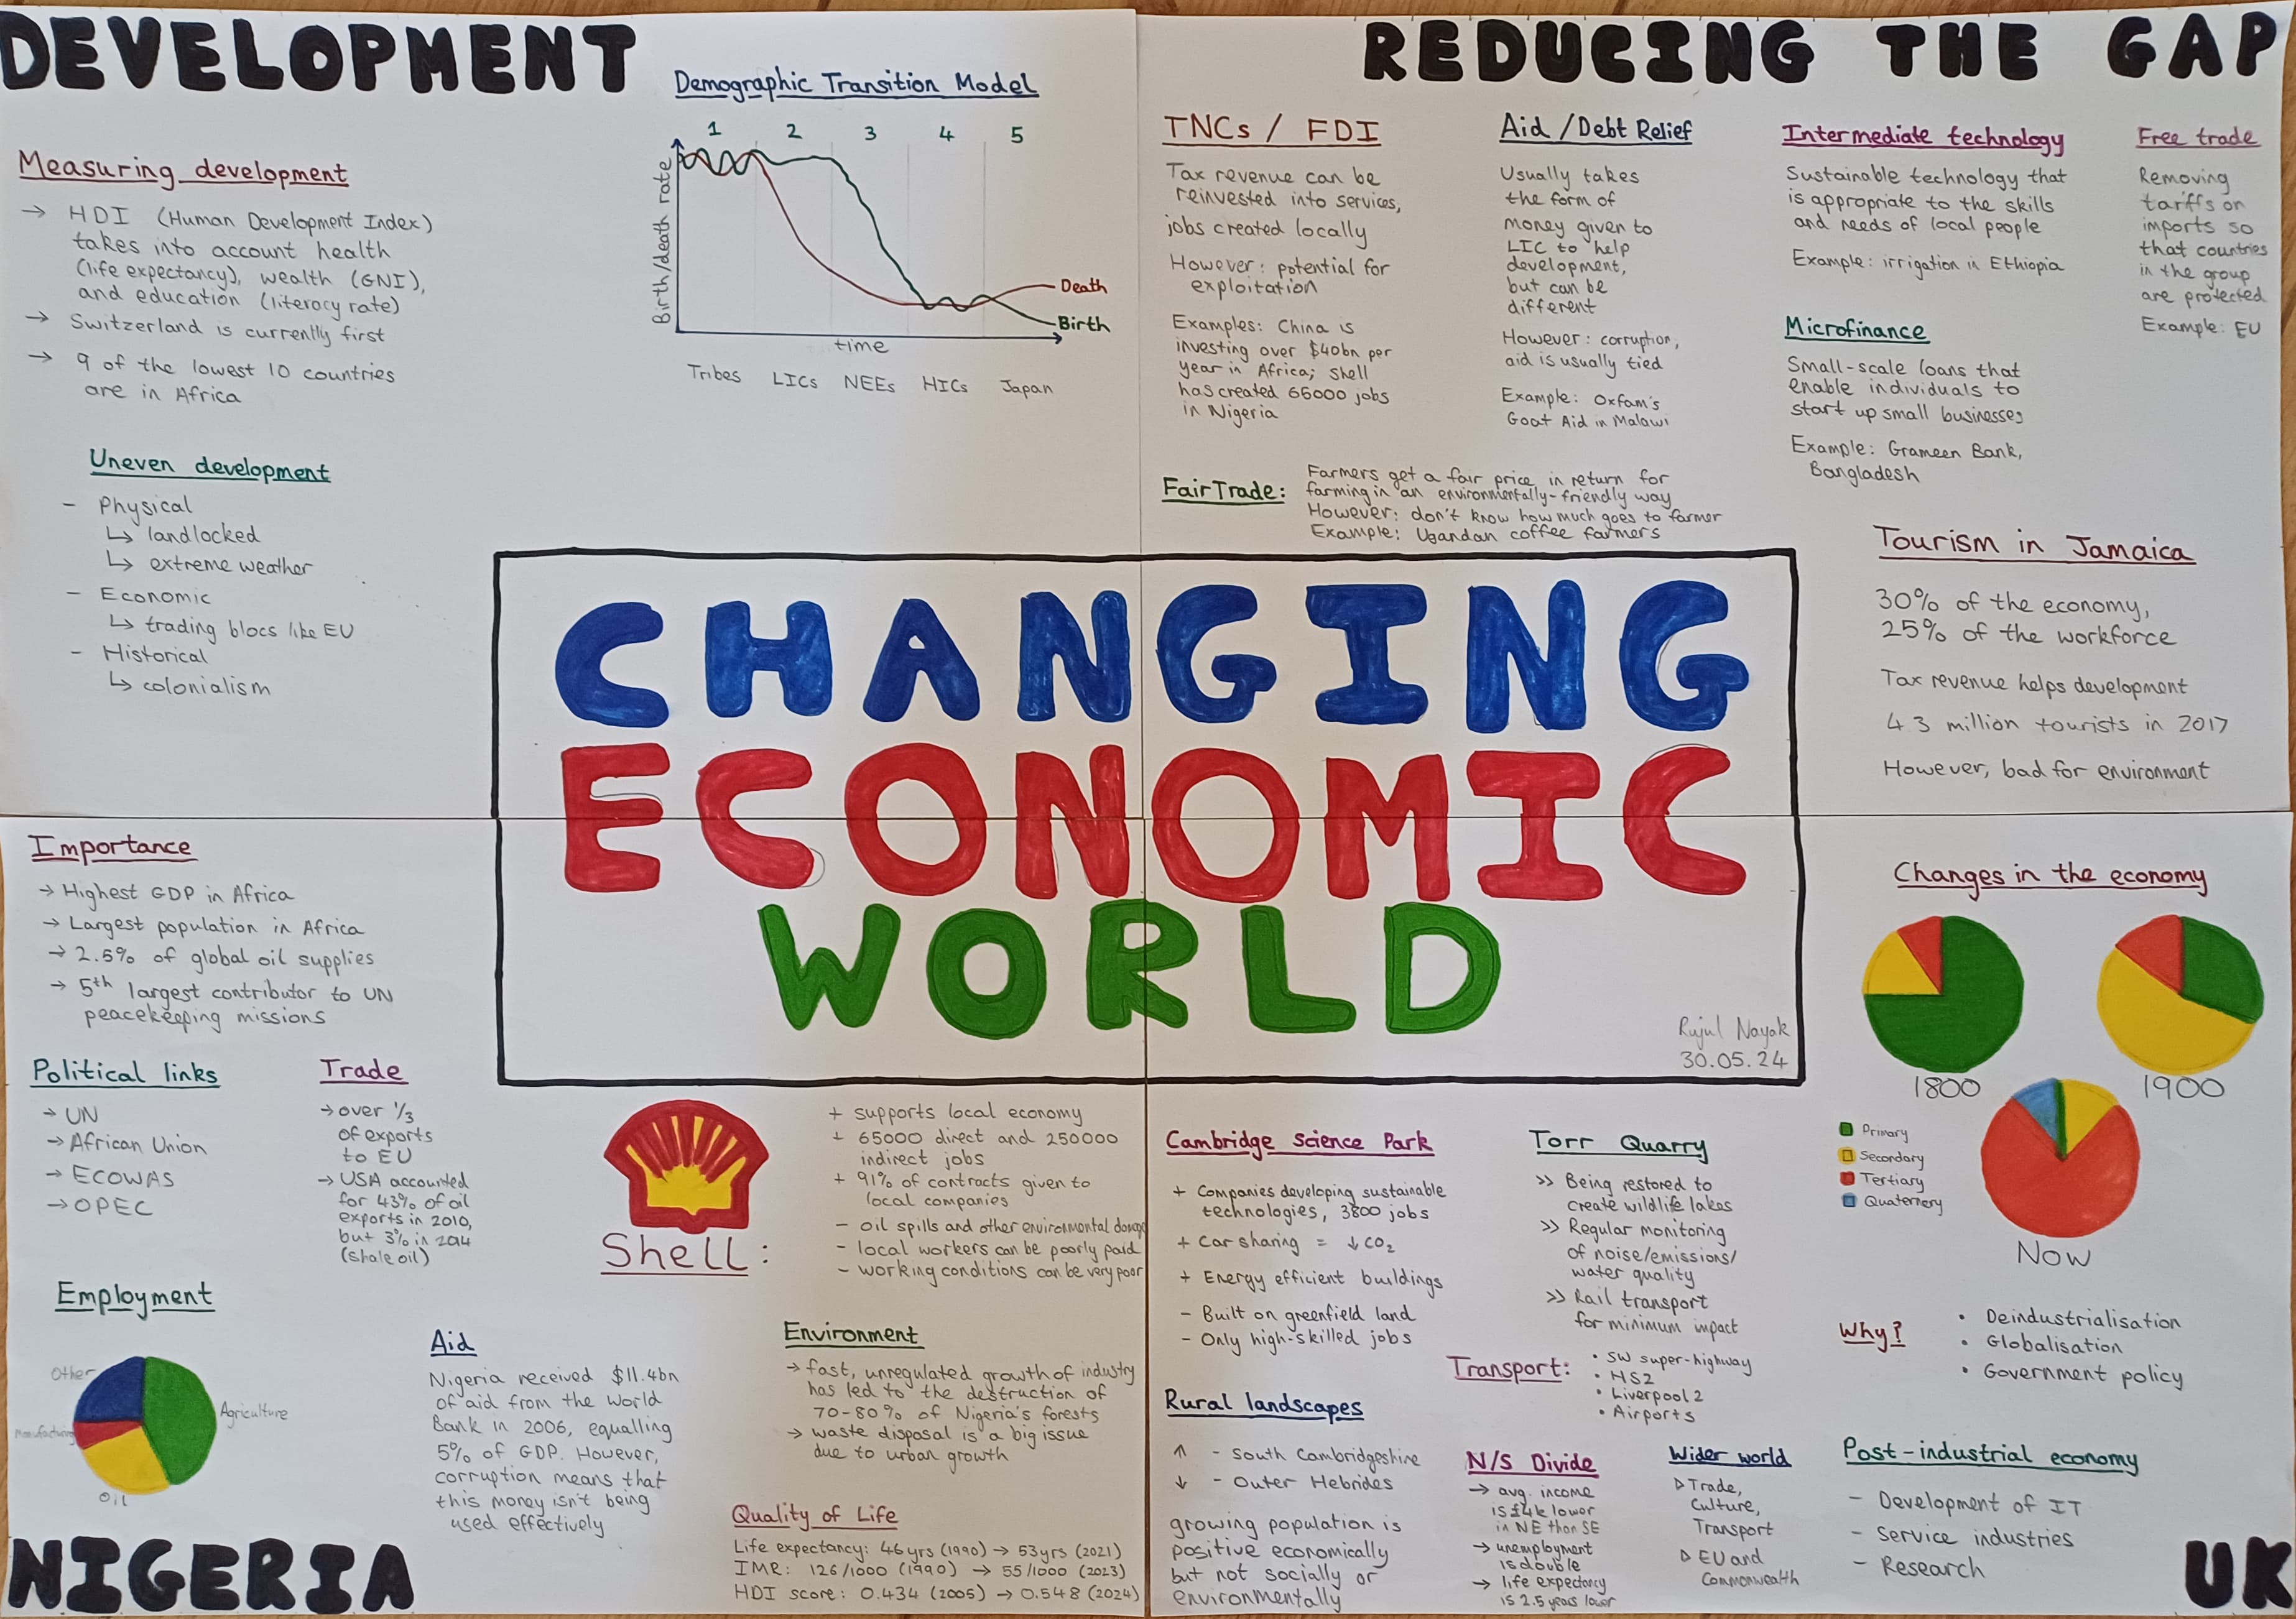 DEVELOPMENT
Measuring development
→ HDI (Human Development Index)
takes into account health
(life expectancy), wealth (GNI),
and education (literacy rate)
→ Switzerland is currently first
→ 9 of the lowest 10 countries
are in Africa
Uneven development
- Physical
↳ landlocked
↳ extreme weather
- Economic
↳ trading blocs like EU
- Historical
↳ colonialism
Demographic Transition Model
1 2 3 4 5
Birth/death rate
Death
Birth
time
Tribes LICs NEEs HICs Japan
REDUCING THE GAP
TNCs / FDI
Tax revenue can be
reinvested into services,
jobs created locally
However: potential for
exploitation
Examples: China is
investing over $40bn per
year in Africa; Shell
has created 65000 jobs
in Nigeria
Aid/Debt Relief
Usually takes
the form of
money given to
LIC to help
development,
but can be
different
However: corruption,
aid is usually tied
Example: Oxfam's
Goat Aid in Malawi
Intermediate technology
Sustainable technology that
is appropriate to the skills
and needs of local people
Example: irrigation in Ethiopia
Microfinance
Small-scale loans that
enable individuals to
start up small businesses
Example: Grameen Bank,
Bangladesh
Free trade
Removing
tariffs on
imports so
that countries
in the group
are protected
Example: EU
FairTrade:
Farmers get a fair price in return for
farming in an environmentally-friendly way
However: don't know how much goes to farmer
Example: Ugandan coffee farmers
Tourism in Jamaica
30% of the economy,
25% of the workforce
Tax revenue helps development
4.3 million tourists in 2017
However, bad for environment
CHANGING
ECONOMIC
WORLD
Rujul Nayak
30.05.24
Importance
→ Highest GDP in Africa
→ Largest population in Africa
→ 2.5% of global oil supplies
→ 5th largest contributor to UN
peacekeeping missions
Political links
→ UN
→ African Union
→ ECOWAS
→ OPEC
Trade
→ over 1/3
of exports
to EU
→ USA accounted
for 43% of oil
exports in 2010,
but 3% in 2014
(shale oil)
Shell:
+ supports local economy
+ 65000 direct and 250000
indirect jobs
+ 91% of contracts given to
local companies
- oil spills and other environmental damage
- local workers can be poorly paid
- working conditions can be very poor
Employment
Other
Agriculture
Manufacturing
Oil
Aid
Nigeria received $11.4bn
of aid from the World
Bank in 2006, equalling
5% of GDP. However,
corruption means that
this money isn't being
used effectively
Environment
→ fast, unregulated growth of industry
has led to the destruction of
70-80% of Nigeria's forests
→ waste disposal is a big issue
due to urban growth
Quality of Life
Life expectancy: 46yrs (1990) → 53yrs (2021)
IMR: 126/1000 (1990) → 55/1000 (2023)
HDI score: 0.434 (2005) → 0.548 (2024)
NIGERIA
Cambridge Science Park
+ Companies developing sustainable
technologies, 3800 jobs
+ Car sharing = ↓CO2
+ Energy efficient buildings
- Built on greenfield land
- Only high-skilled jobs
Torr Quarry
>> Being restored to
create wildlife lakes
>> Regular monitoring
of noise/emissions/
water quality
>> Rail transport
for minimum impact
Changes in the economy
1800
1900
Now
Primary
Secondary
Tertiary
Quaternary
Why?
• Deindustrialisation
• Globalisation
• Government policy
Transport:
• SW super-highway
• HS2
• Liverpool2
• Airports
Rural landscapes
↑ - South Cambridgeshire
↓ - Outer Hebrides
growing population is
positive economically
but not socially or
environmentally
N/S Divide
→ avg. income
is £4k lower
in NE than SE
→ unemployment
is double
→ life expectancy
is 2.5 years lower
Wider world
▷ Trade,
Culture,
Transport
▷ EU and
Commonwealth
Post-industrial economy
- Development of IT
- Service industries
- Research
UK